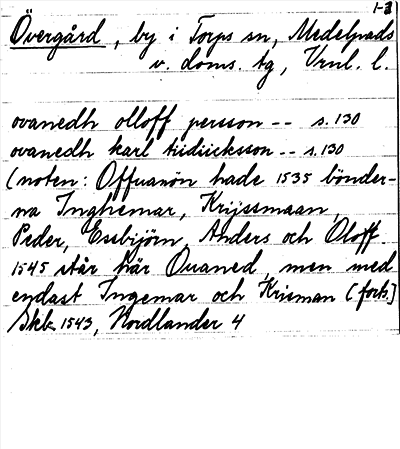 1-3
Övergård, by i Torps sn, Medelpads
v. doms. tg, Vrnl. l.
ovanedh olloff persson -- s.130
ovanedh karl tiidiicksson -- s.130
(noten: Offuanön hade 1535 bönder-
na Inghemar, Krijssmaan,
Peder, Essbijörn, Anders och Oloff.
1545 står här Ouaned, men med
endast Ingemar och Krisman (forts.)
Skb 1543, Nordlander 4